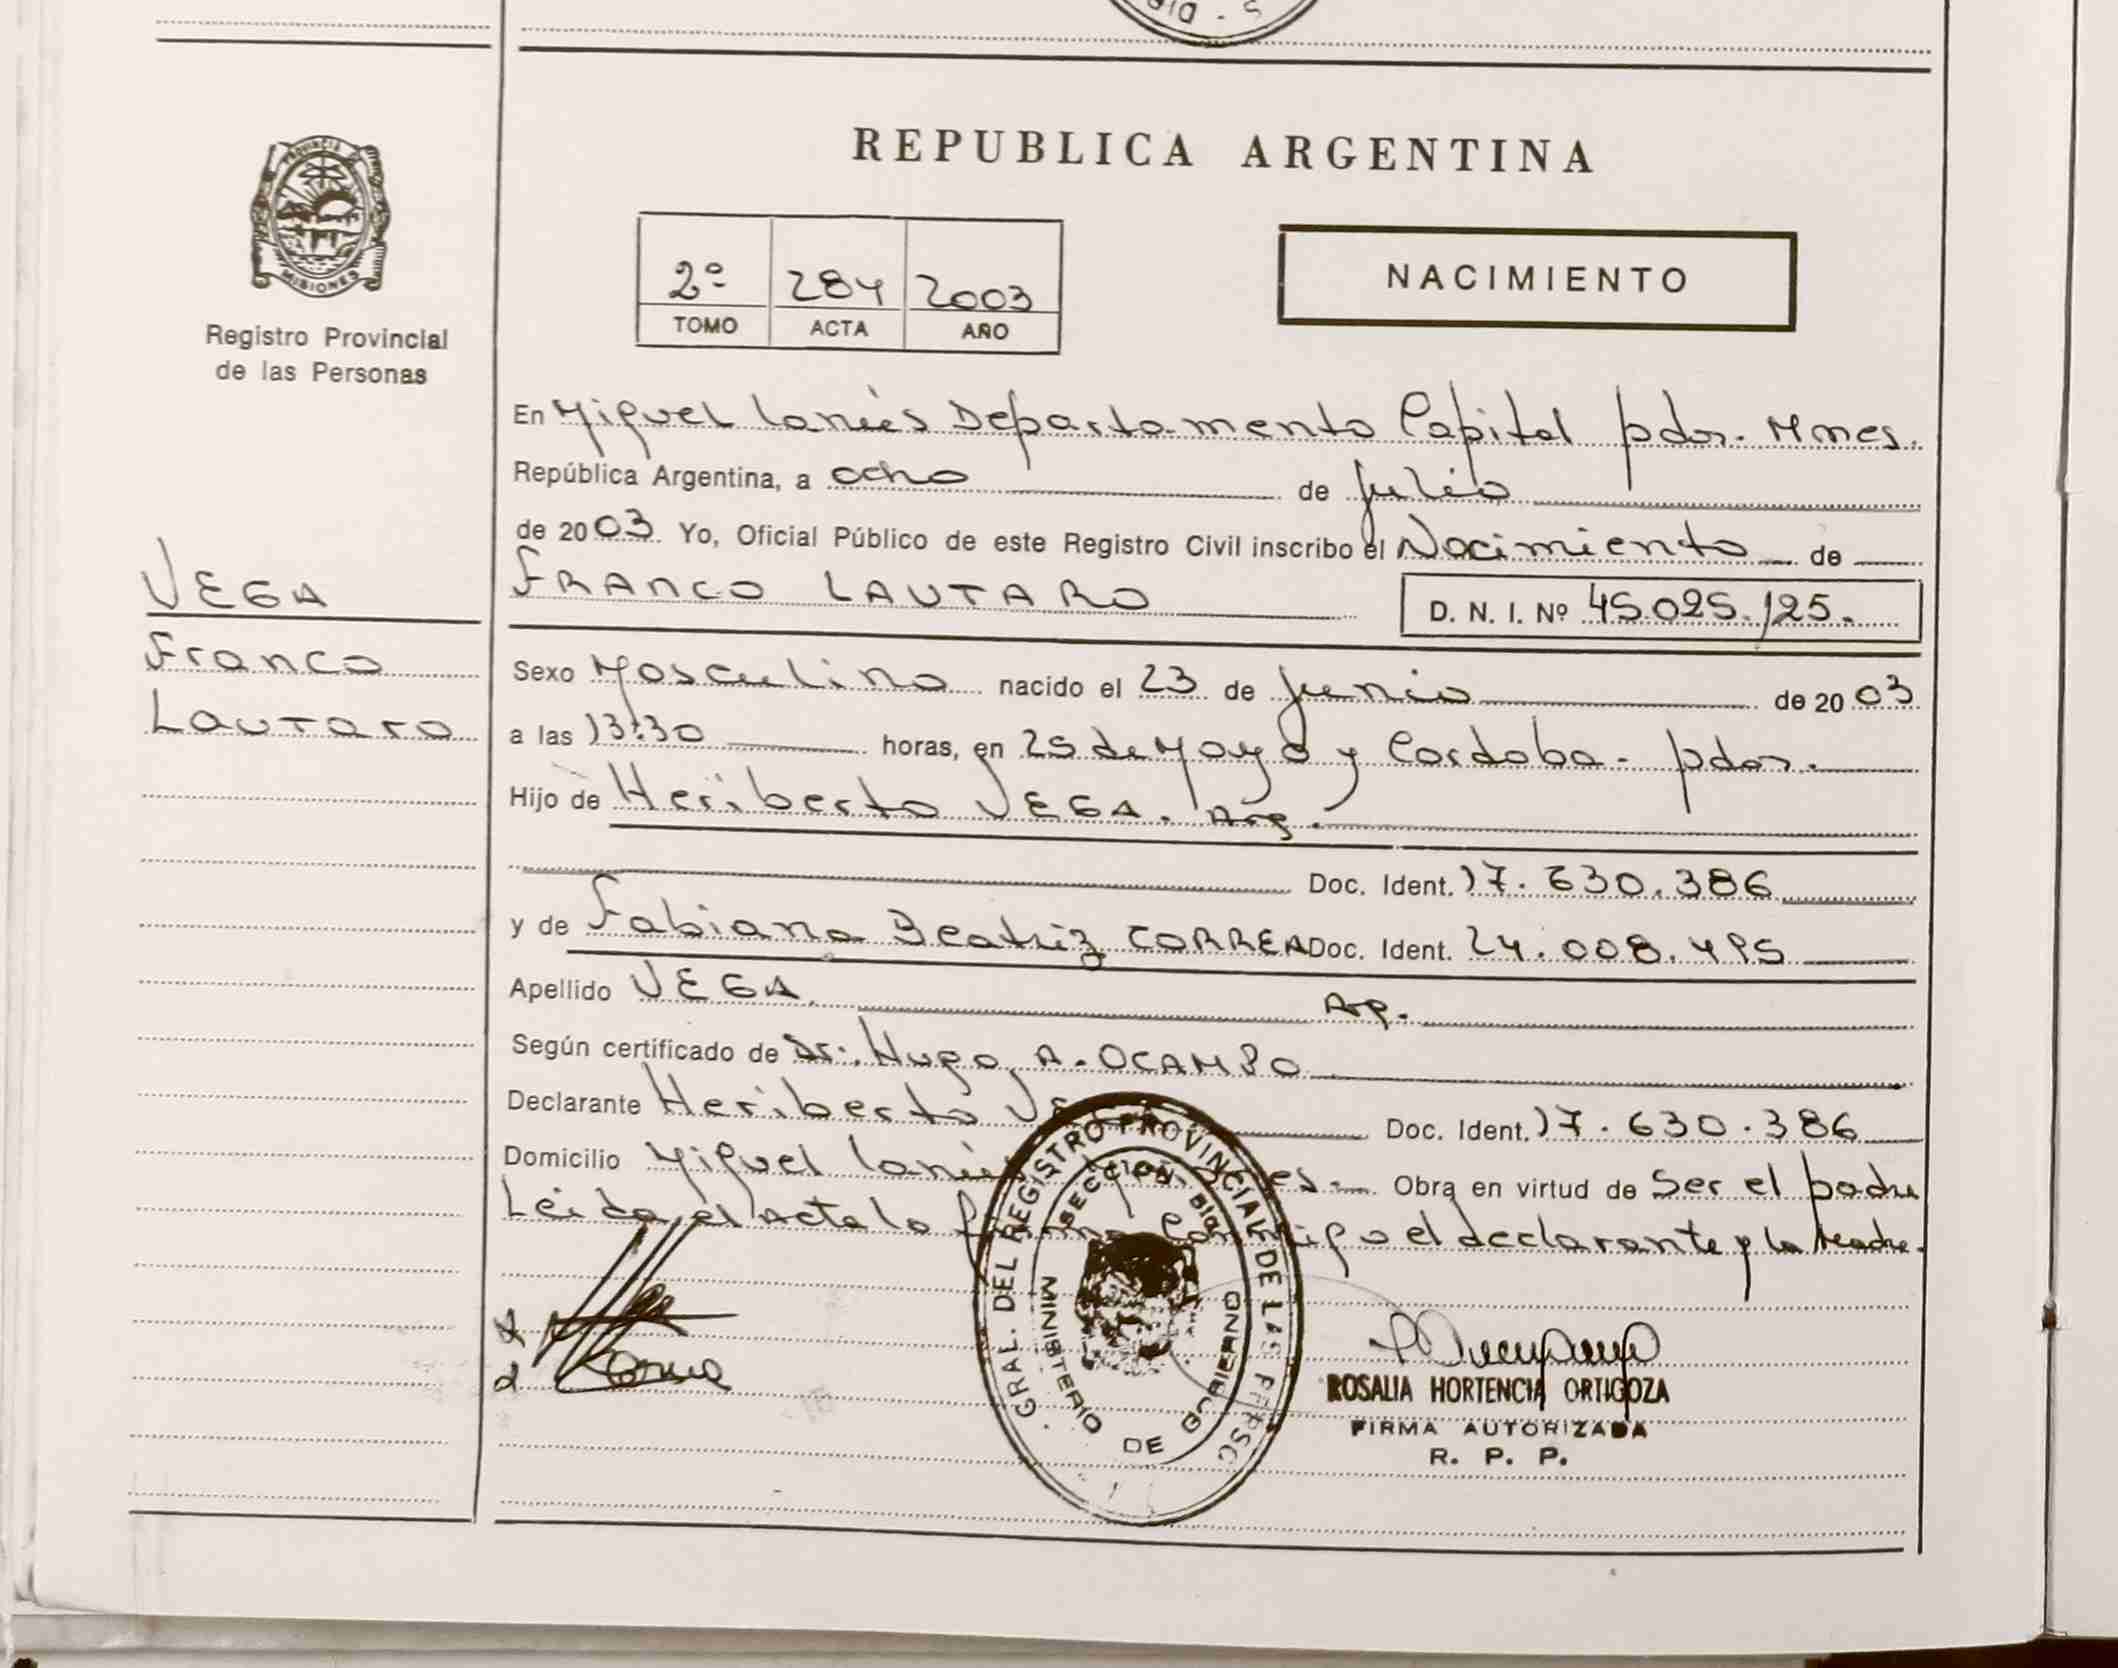 S - DIR
PROVINCIA DE
MISIONES
Registro Provincial
de las Personas
VEGA
Franco
Lautaro
REPUBLICA ARGENTINA
2º 284 2003
TOMO ACTA AÑO
NACIMIENTO
En Miguel Lanús Departamento Capital pdas. Mnes.
República Argentina, a ocho de julio
de 2003. Yo, Oficial Público de este Registro Civil inscribo el Nacimiento de
FRANCO LAUTARO
D. N. I. Nº 45.025.125.
Sexo Masculino nacido el 23 de junio de 2003
a las 13:30 horas, en 25 de Mayo y Cordoba - pdas.
Hijo de Heriberto VEGA. Arg.
Doc. Ident. 17.630.386
y de Fabiana Beatriz CORREA Doc. Ident. 24.008.495
Apellido VEGA. Arg.
Según certificado de Dr. Hugo A. OCAMPO
Declarante Heriberto Doc. Ident. 17.630.386
Domicilio Miguel Lanús Obra en virtud de Ser el padre
Leida el acta la firma conmigo el declarante y la madre.
GRAL. DEL REGISTRO PROVINCIAL DE LAS PERSO
SECCION
MINISTERIO DE GOBIERNO
ROSALIA HORTENCIA ORTIGOZA
FIRMA AUTORIZADA
R. P. P.